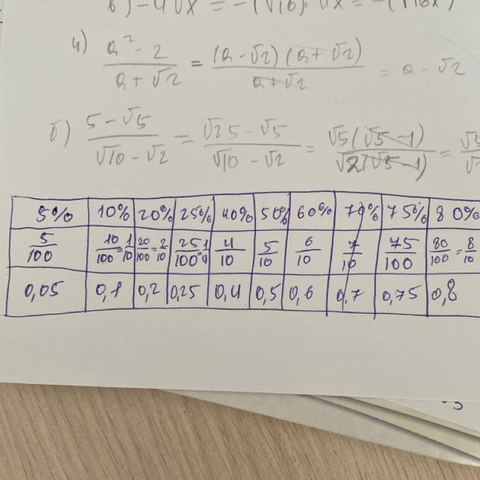 б) -4√x = -(√16)·√x = -(√16x)
и) (a² - 2)/(a + √2) = (a - √2)(a + √2)/(a + √2) = a - √2
б) (5 - √5)/(√10 - √2) = (√25 - √5)/(√10 - √2) = √5(√5 - 1)/√2(√5 - 1) = √5
5% 10% 20% 25% 40% 50% 60% 70% 75% 80%
5/100 10/100=1/10 20/100=2/10 25/100 1/4 4/10 5/10 6/10 7/10 75/100 80/100=8/10
0,05 0,1 0,2 0,25 0,4 0,5 0,6 0,7 0,75 0,8